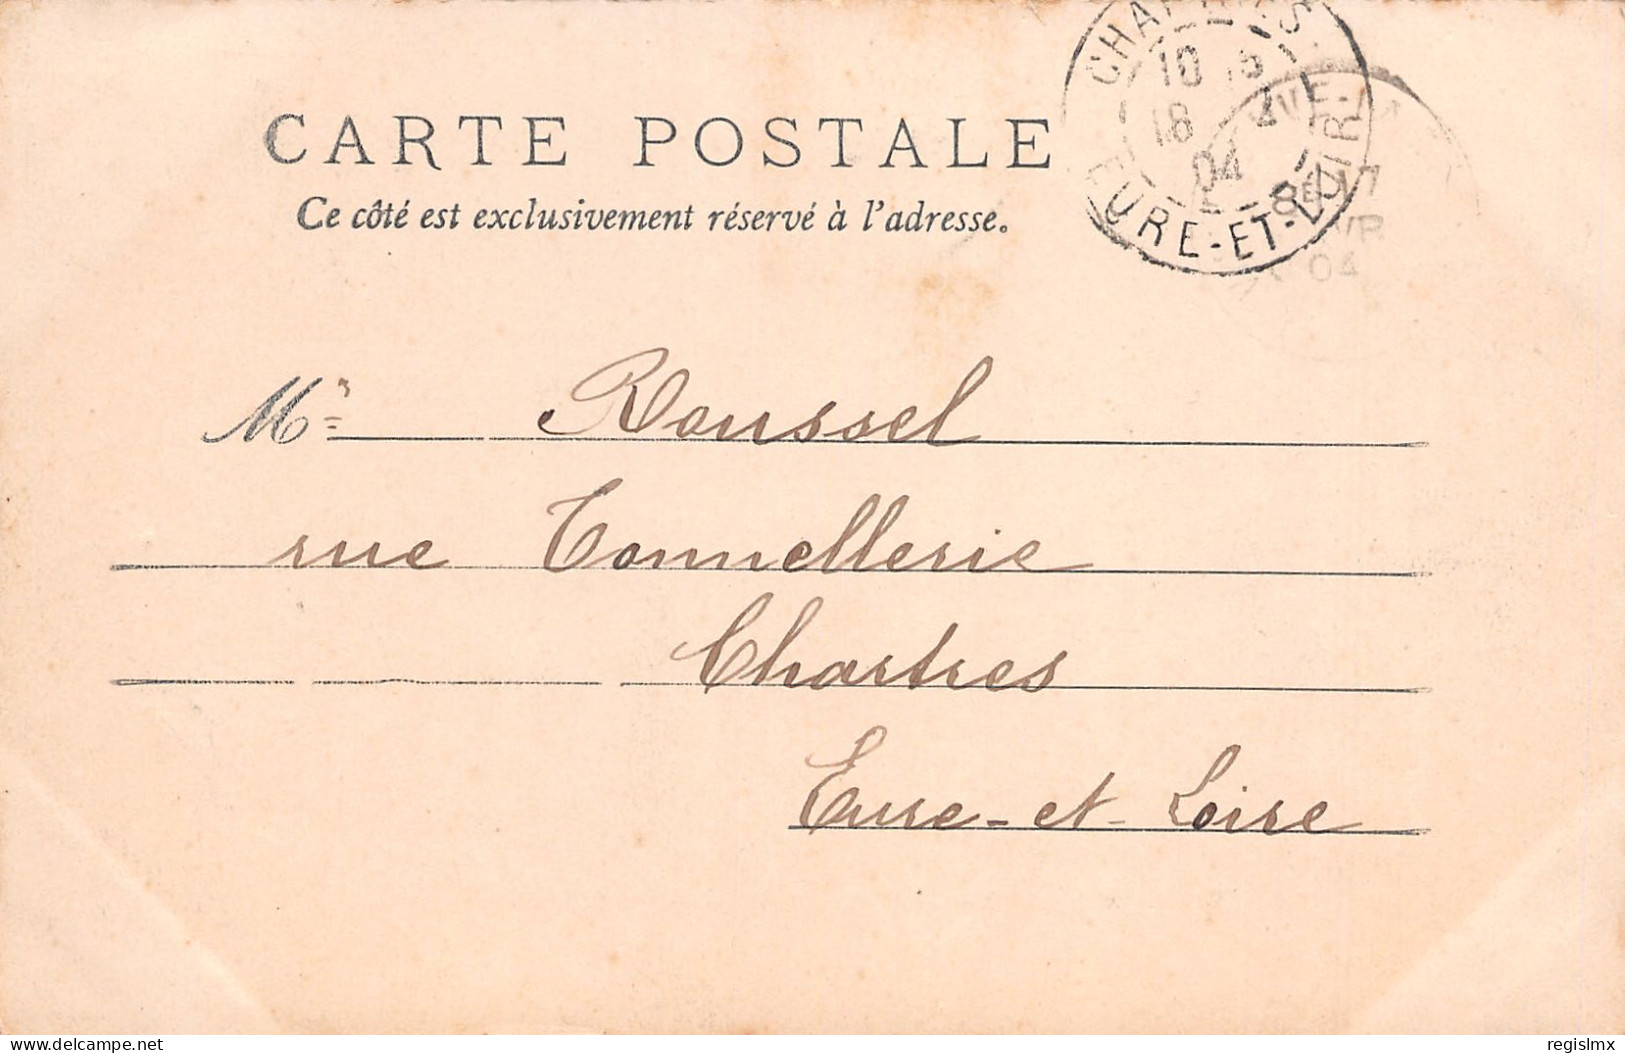 CARTE POSTALE
Ce côté est exclusivement réservé à l'adresse.
CHARTRES
10
18 4
04
EURE-ET-LOIR
8E 17
04
Mr Roussel
rue Tonnellerie
Chartres
Eure-et-Loire
www.delcampe.net
regislmx